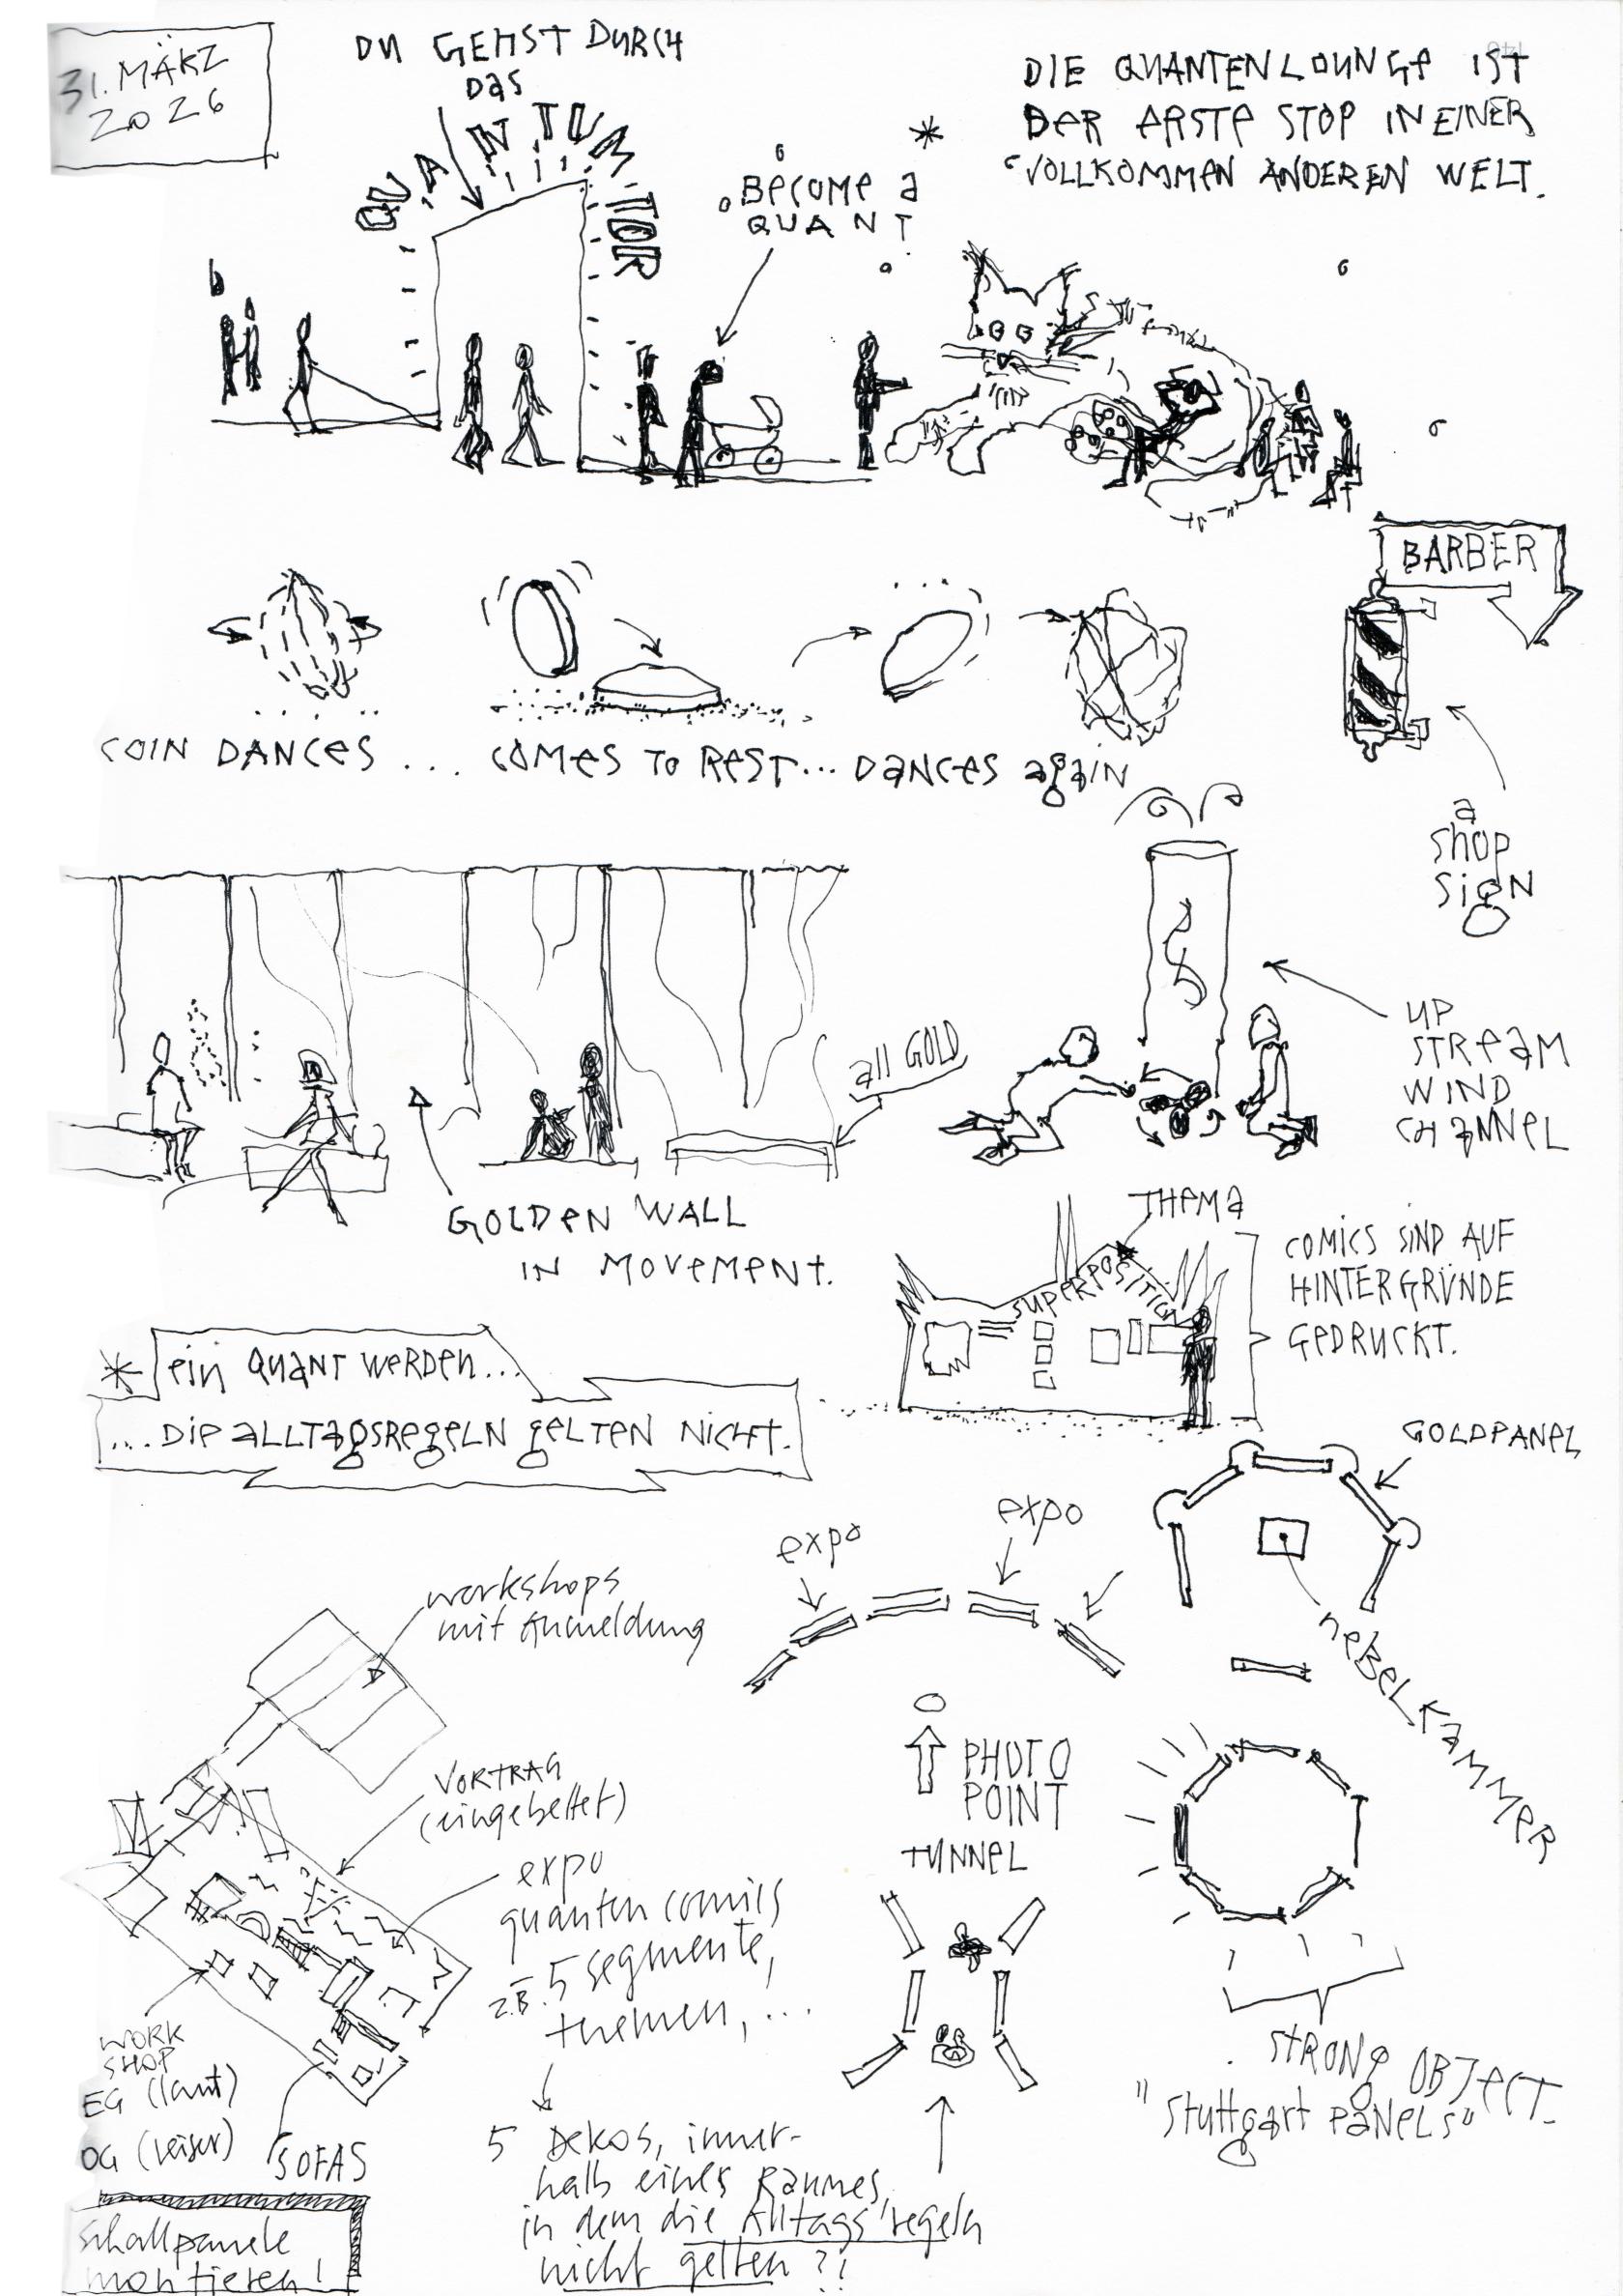 31. MÄRZ
2026
DU GEHST DURCH
Das
QUANTUM TOR
BECOME a
QUANT
*
DIE QUANTENLOUNGE IST
DER ERSTE STOP IN EINER
VOLLKOMMEN ANDEREN WELT.
BARBER
COIN DANCES ... COMES TO REST... DANCES again
a
shop
sign
UP
STREAM
WIND
CHANNEL
all GOLD
GOLDEN WALL
IN MOVEMENT.
THEMA
SUPERPOSITION
COMICS SIND AUF
HINTERGRÜNDE
GEDRUCKT.
* ein QUANT WERDEN...
...DIE ALLTAGSREGELN GELTEN NICHT.
GOLDPANEL
expo
expo
NEBELKAMMER
workshops
mit Anmeldung
VORTRAG
(eingebettet)
expo
quanten comics
z.B. 5 segmente,
themen, ...
PHOTO
POINT
TUNNEL
WORK
SHOP
EG (laut)
OG (leiser)
SOFAS
Schallpanele
montieren!
5 Dekos, inner-
halb eines Raumes,
in dem die Alltags'regeln
nicht gelten ?!
STRONG OBJECT.
"Stuttgart PANELS"